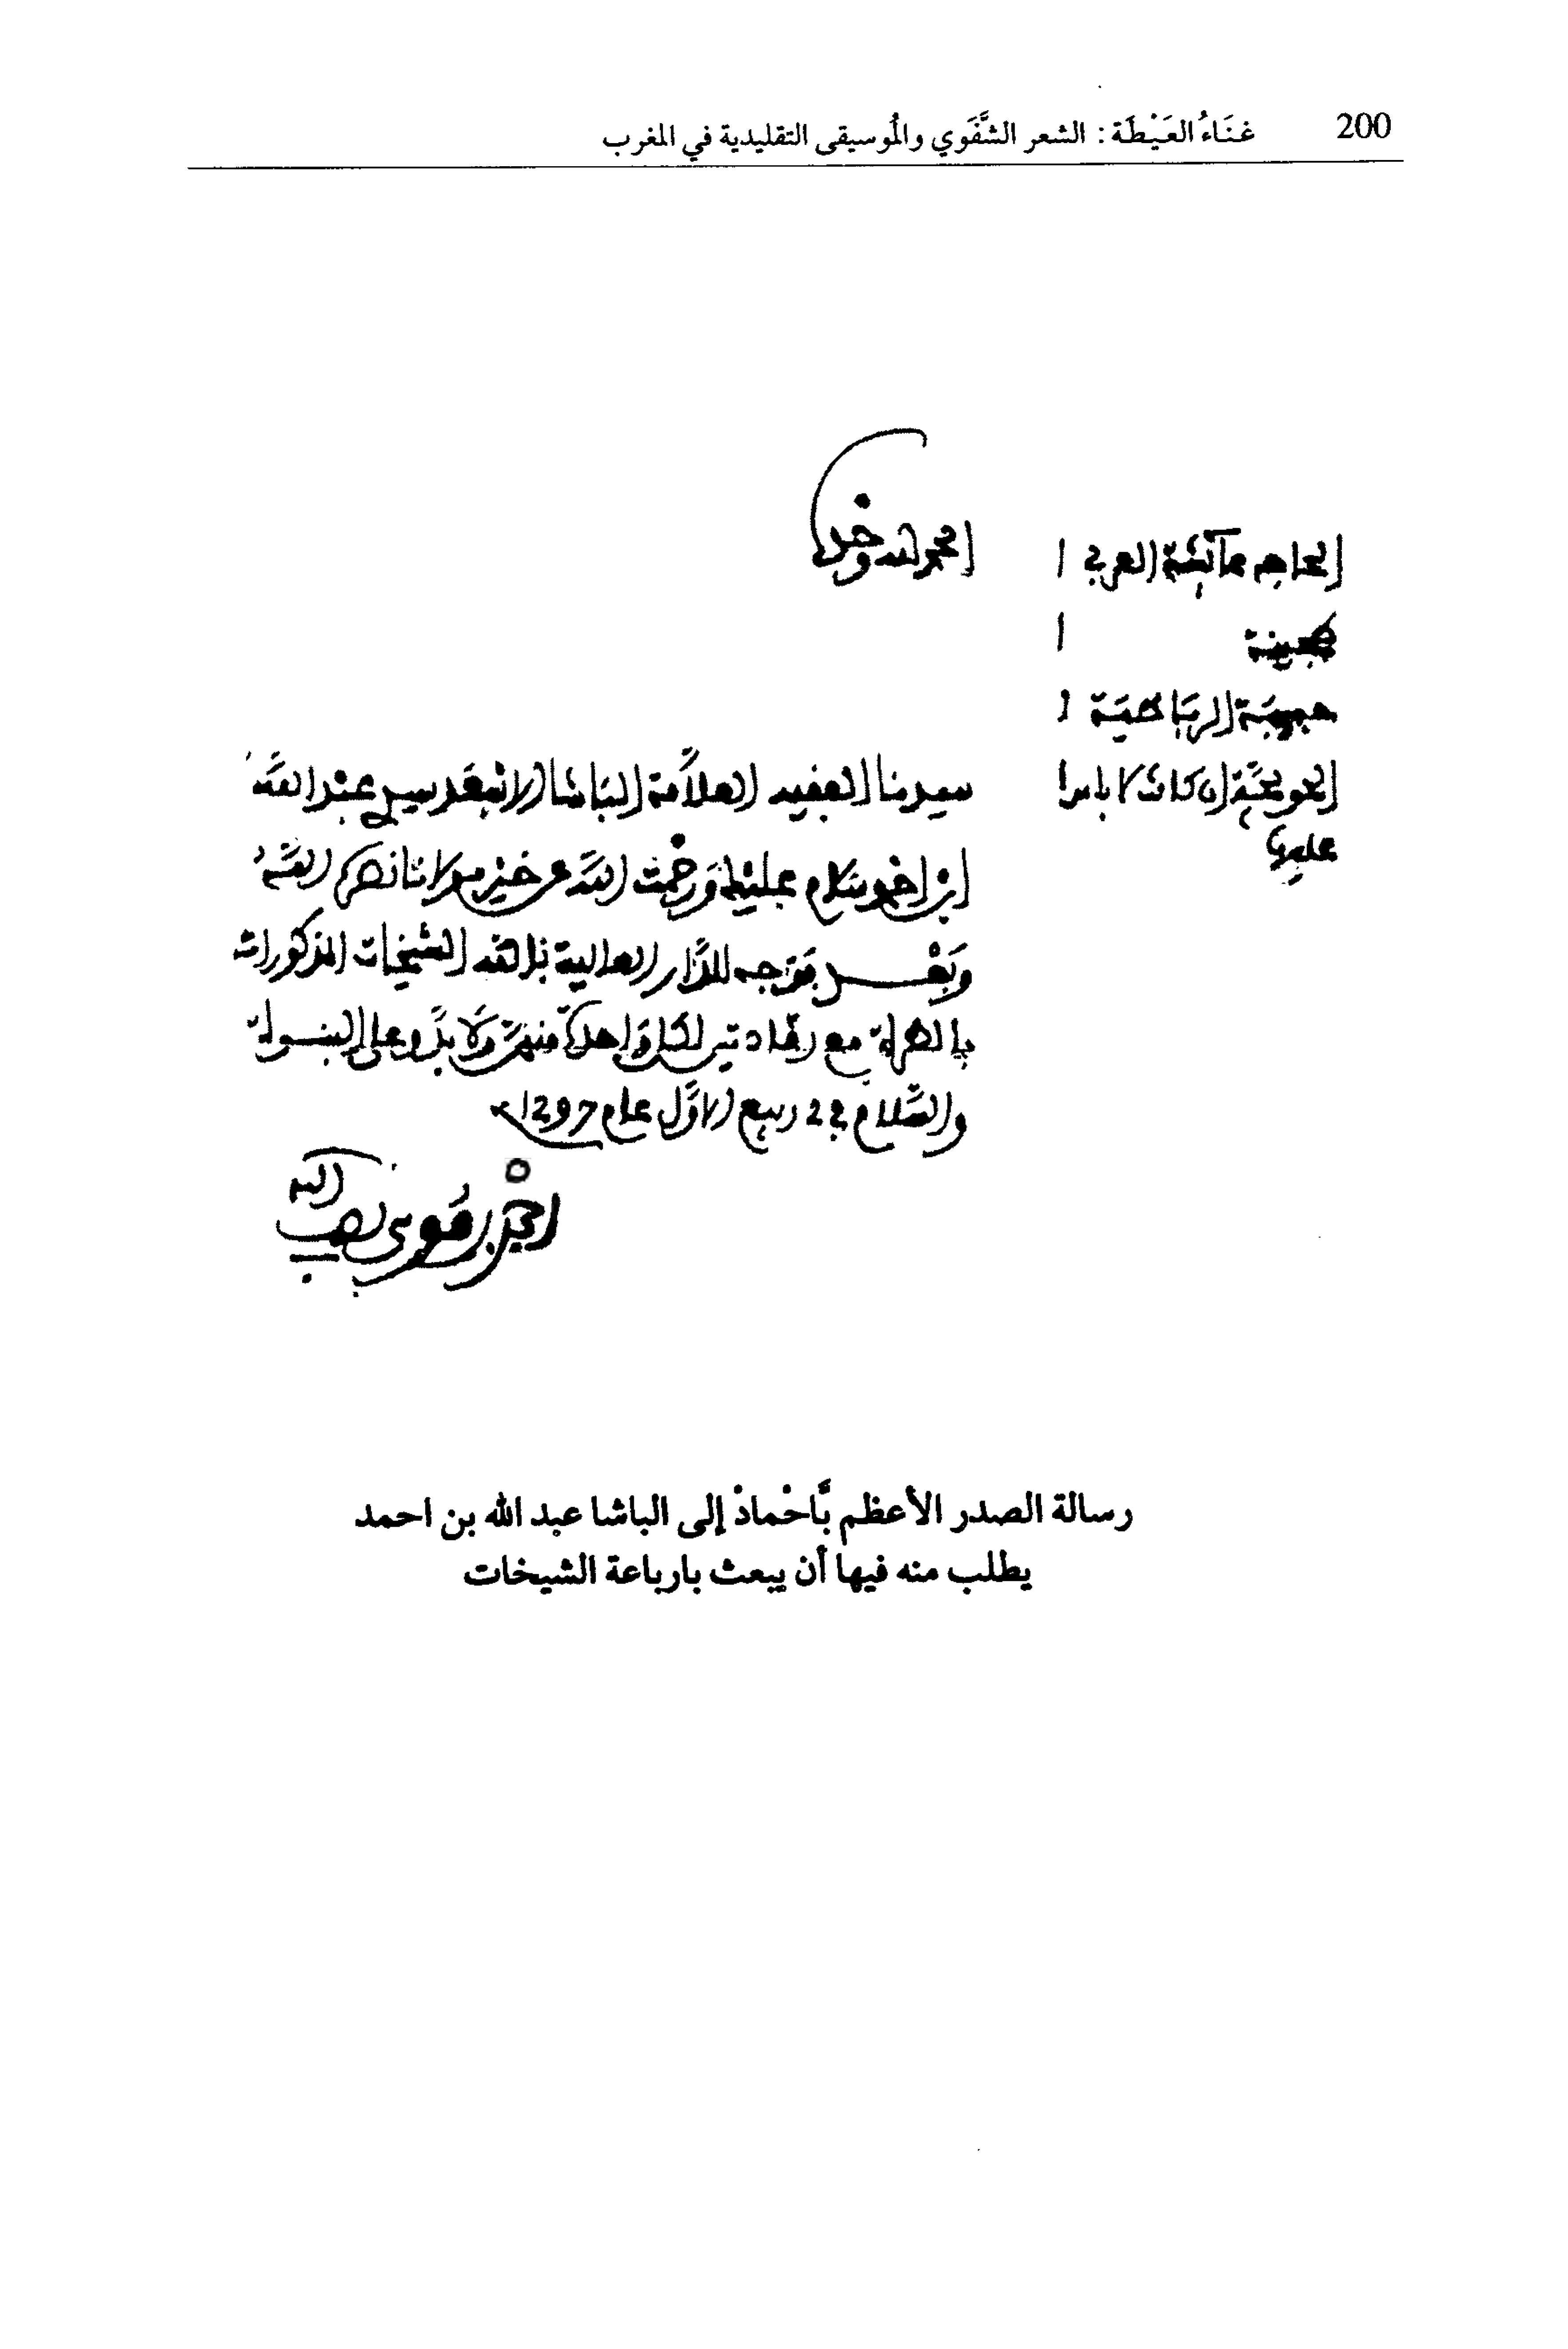 200
غنَاءُ العَيْطَة : الشعر الشَّفَوي والمُوسيقى التقليدية في المغرب
الحمد لله وحده
الحاجم عائشة العربي 1
1
الرباطية 1
الحويجة إن كانت لا باس
عليها
سيدنا الفقيه العلامة الباشا الاسعد سي عبد الله
ابن احمد سلام عليك ورحمت الله عن خير مولانا نصره الله
وبعد فوجه للدار العالية بالله الشيخات المذكورات
مع لكل واحدة منهن ولا بد وعلى
والسلام في 22 ربيع الاول عام 1297
احمد بن موسى لطف الله به
رسالة الصدر الأعظم بَّاحْمادْ إلى الباشا عبد الله بن احمد
يطلب منه فيها أن يبعث بارباعة الشيخات